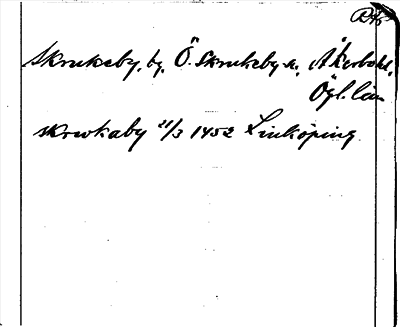 RAp
Skrukeby, by, Ö. Skrukeby sn, Åkerbo hd,
Ögl. län
skrwkaby 21/3 1452 Linköping